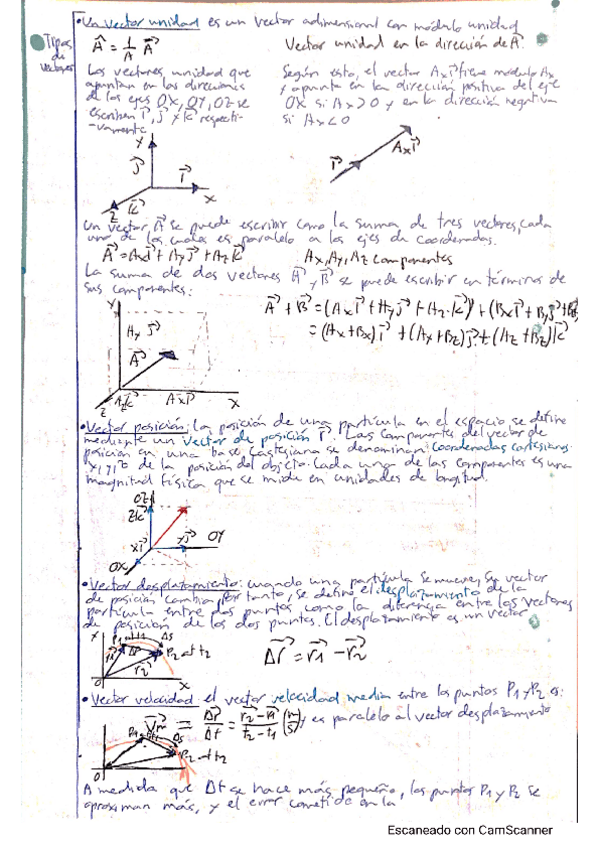 • Un vector unidad es un vector adimensional con módulo unidad
Tipos de vectores
Â = 1/A A⃗
Vector unidad en la dirección de A⃗
Los vectores unidad que
apuntan en las direcciones
de los ejes OX, OY, OZ se
escriben i⃗, j⃗ y k⃗ respecti-
-vamente
Según esto, el vector Axi⃗ tiene módulo Ax
y apunta en la dirección positiva del eje
OX si Ax>0 y en la dirección negativa
si Ax<0
Y
j⃗
i⃗
X
Z
k⃗
i⃗
Axi⃗
Un vector A⃗ se puede escribir como la suma de tres vectores, cada
uno de los cuales es paralelo a los ejes de coordenadas.
A⃗ = Axi⃗ + Ayj⃗ + Azk⃗
Ax, Ay, Az componentes
La suma de dos vectores A⃗ y B⃗ se puede escribir en términos de
sus componentes:
A⃗ + B⃗ = (Axi⃗ + Ayj⃗ + Az·k⃗) + (Bxi⃗ + Byj⃗ + Bzk⃗)
= (Ax+Bx)i⃗ + (Ay+By)j⃗ + (Az+Bz)k⃗
Y
Ay j⃗
A⃗
Azk⃗
Axi⃗
X
Z
• Vector posición: la posición de una partícula en el espacio se define
mediante un vector de posición r⃗. Las componentes del vector de
posición en una base cartesiana se denominan coordenadas cartesianas
x, y, z de la posición del objeto. Cada una de las componentes es una
magnitud física que se mide en unidades de longitud.
OZ
zk⃗
xi⃗
yj⃗
OY
OX
• Vector desplazamiento: cuando una partícula se mueve, su vector
de posición cambia, por tanto, se define el desplazamiento de la
partícula entre dos puntos como la diferencia entre los vectores
de posición de los dos puntos. El desplazamiento es un vector
P1 t t1
Δs
Δr⃗
P2 at t2
r⃗2
O
X
Δr⃗ = r⃗1 − r⃗2
• Vector velocidad el vector velocidad media entre los puntos P1 y P2 es:
V⃗m = Δr⃗/Δt = r2−r1/t2−t1 (m/s) y es paralelo al vector desplazamiento
Δs
P2 - t t2
O
A medida que Δt se hace más pequeño, los puntos P1 y P2 se
aproximan más, y el error cometido en la
Escaneado con CamScanner